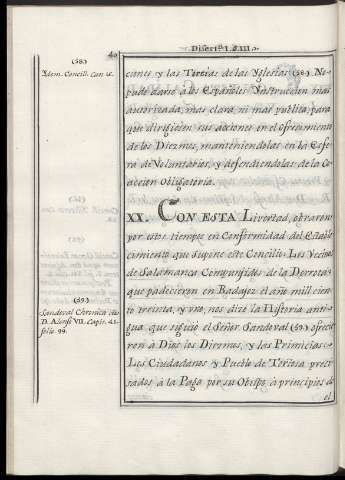 40
Disert.ⁿ I. §. III.
(58.)
Idem. Concill. Can
ciones y las Tercias de las Yglesias (58.) No
pudo darse à los Españoles Ynstruccion mas
autorizada, mas clara, ni mas publica, para
que dirigiesen sus acciones en el ofrecimiento
de los Diezmos, manteniendolas en la Esfe
ra de Voluntarias, y defendiendolas de la Co
accion Obligatoria.
XX. CON ESTA Livertad, obraron
por estos tiempos en Conformidad del Estable
cimiento que supone este Concilio: Los Vecinos
de Salamanca Compungidos de la Derrota
que padecieron en Badajoz el año mil cien
to treinta, y uno, nos dize la Historia anti
gua que siguiò el Señor Sandoval (59.) ofrecie
ron à Dios los Diezmos, y las Primicias.
Los Ciudadanos y Pueblo de Tortosa preci
sados à la Paga por su Obispo, à principios de
el
(59.)
Sandoval Chronica de
D. Alonso VII. Capit. 41.
folio 99.